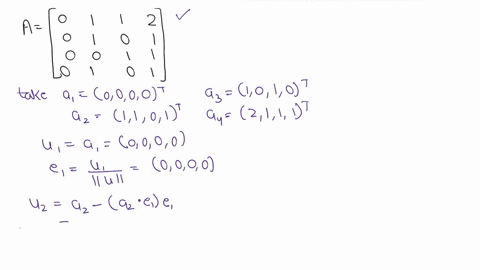 A = [0 1 1 2
0 1 0 1
0 0 1 1
0 1 0 1] ✓
take a₁ = (0,0,0,0)ᵀ a₃ = (1,0,1,0)ᵀ
a₂ = (1,1,0,1)ᵀ a₄ = (2,1,1,1)ᵀ
u₁ = a₁ = (0,0,0,0)
e₁ = u₁/||u|| = (0,0,0,0)
u₂ = a₂ − (a₂ • e₁) e₁